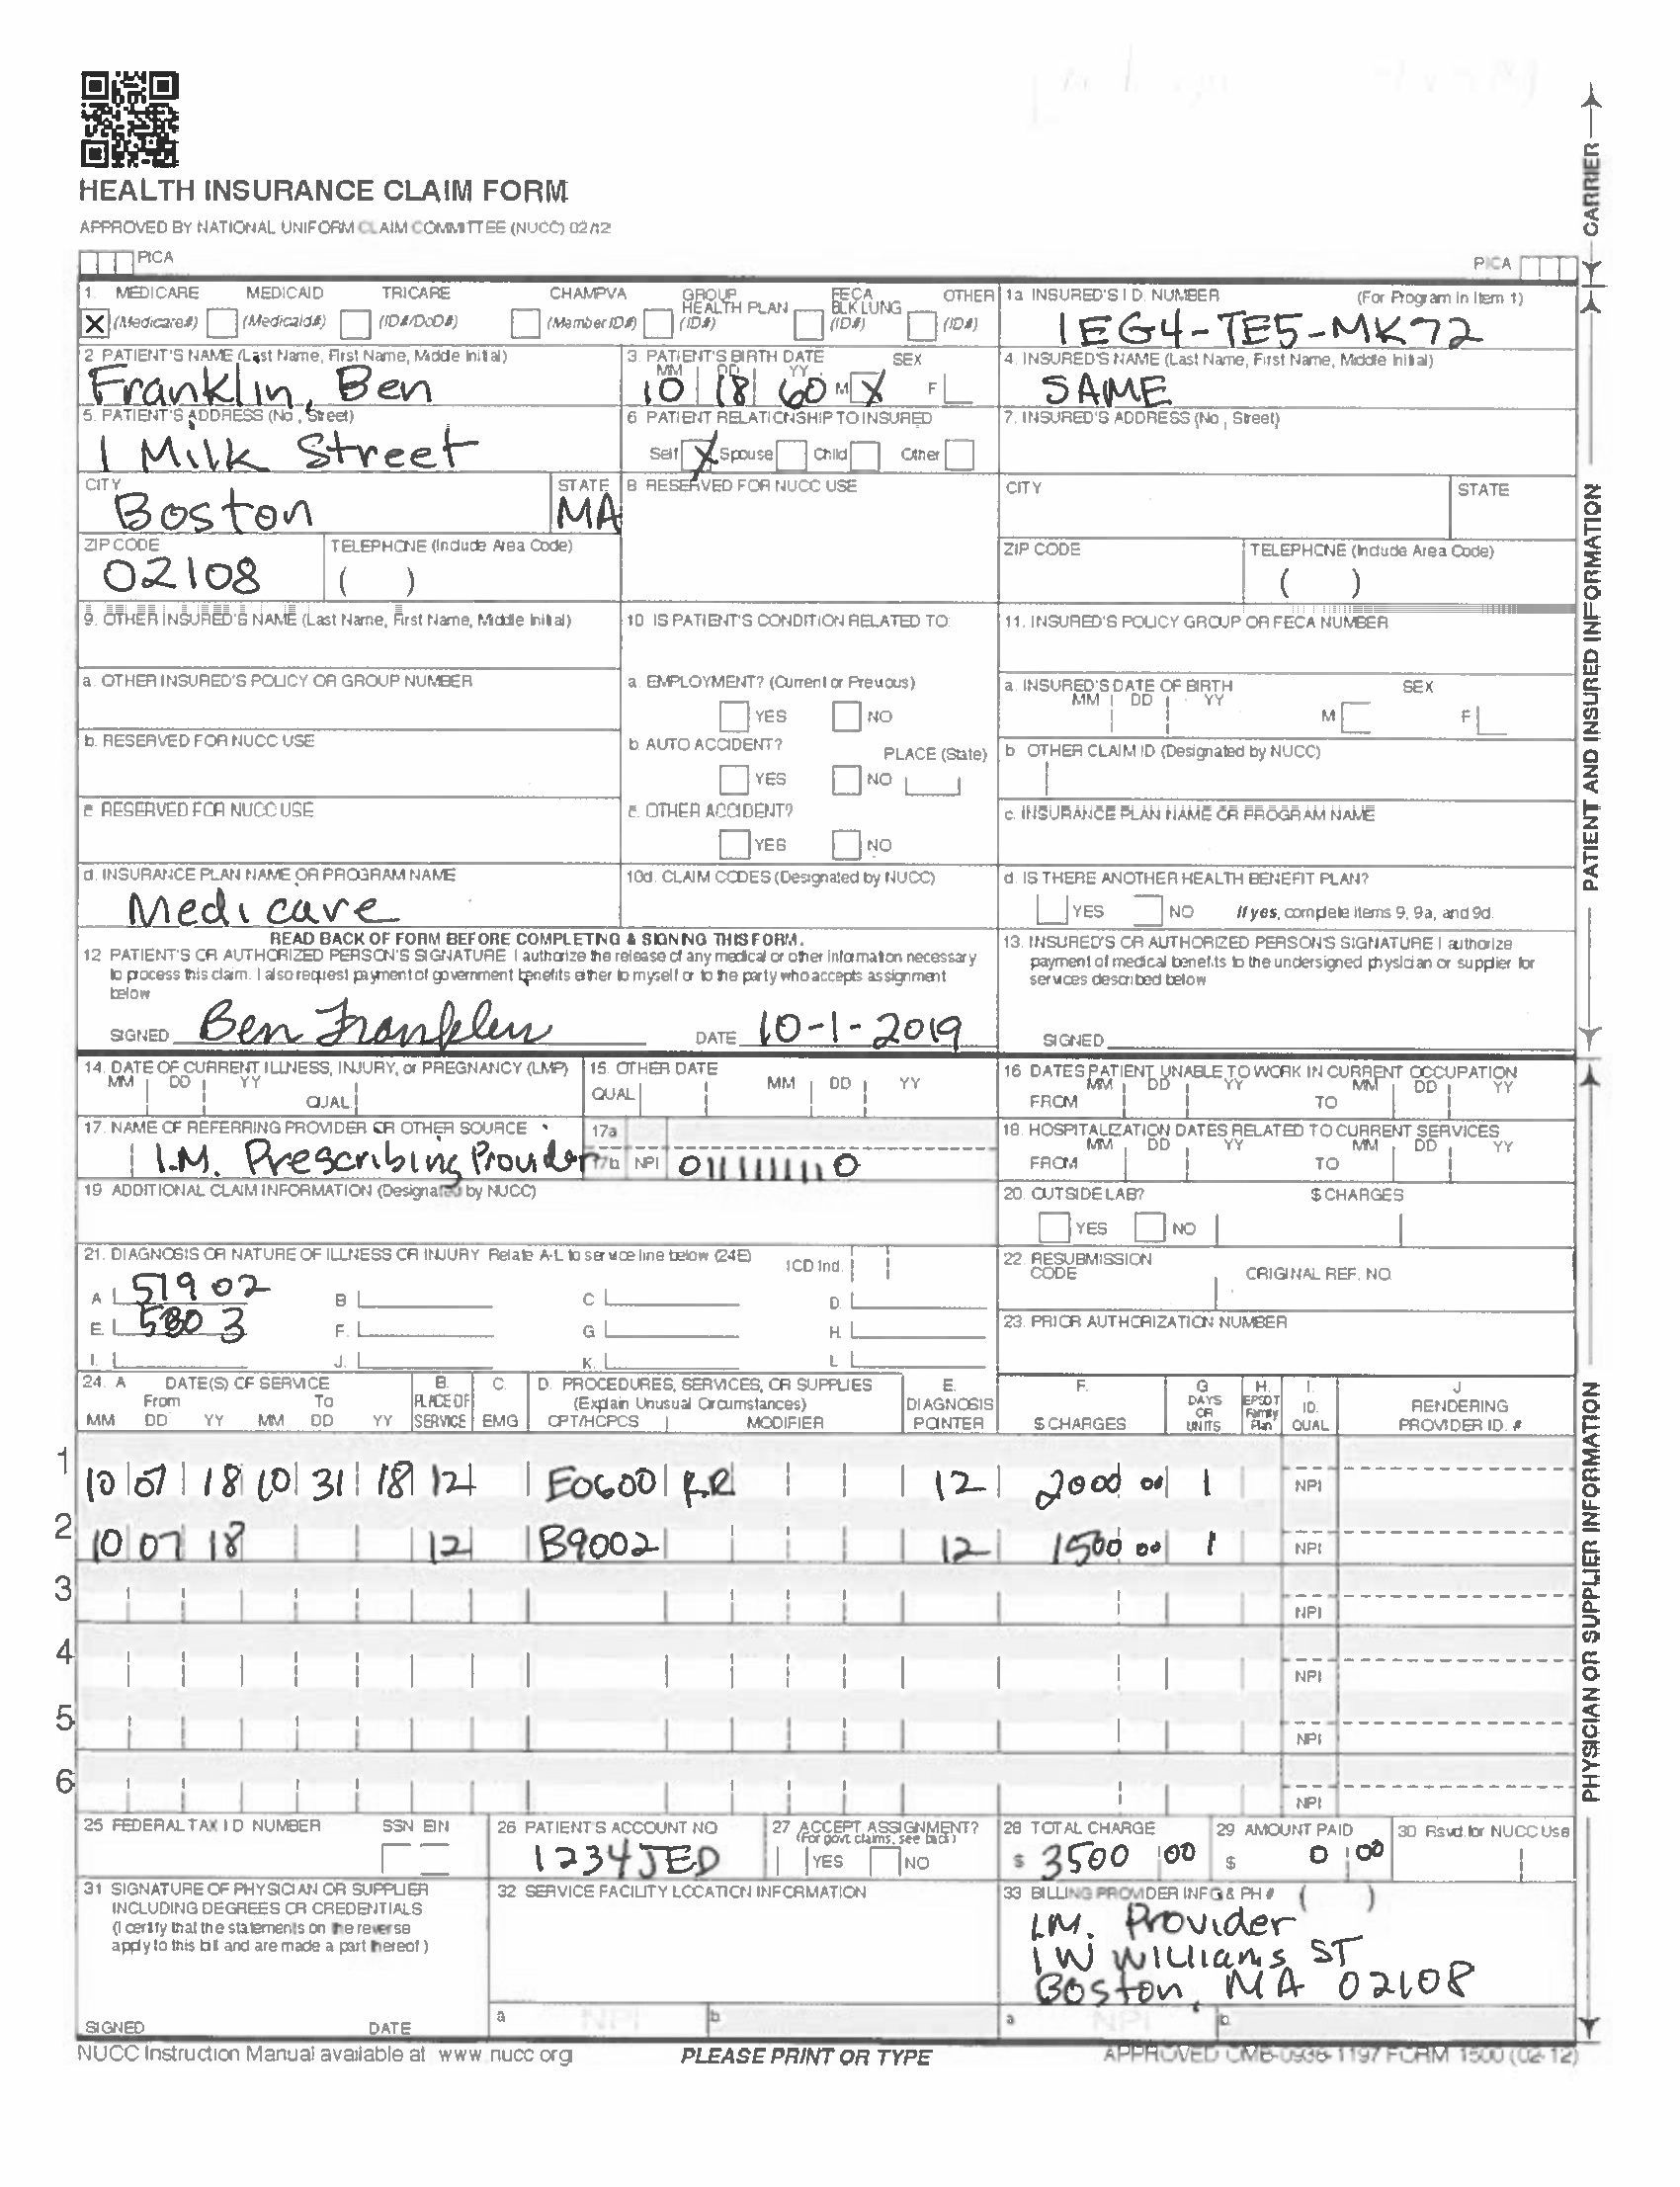 HEALTH INSURANCE CLAIM FORM
APPROVED BY NATIONAL UNIFORM CLAIM COMMITTEE (NUCC) 02/12
PICA
PICA
CARRIER
1. MEDICARE MEDICAID TRICARE CHAMPVA GROUP HEALTH PLAN FECA BLK LUNG OTHER
(Medicare#) (Medicaid#) (ID#/DoD#) (Member ID#) (ID#) (ID#) (ID#)
X
1a INSURED'S I D. NUMBER (For Program in Item 1)
1EG4-TE5-MK72
2 PATIENT'S NAME (Last Name, First Name, Middle Initial)
Franklin, Ben
3. PATIENT'S BIRTH DATE SEX
MM DD YY
10 18 60 M X F
4. INSURED'S NAME (Last Name, First Name, Middle Initial)
SAME
5. PATIENT'S ADDRESS (No, Street)
1 Milk Street
6 PATIENT RELATIONSHIP TO INSURED
Self X Spouse Child Other
7. INSURED'S ADDRESS (No, Street)
CITY
Boston
STATE
MA
8 RESERVED FOR NUCC USE
CITY
STATE
ZIP CODE
02108
TELEPHONE (Include Area Code)
( )
ZIP CODE
TELEPHONE (Include Area Code)
( )
PATIENT AND INSURED INFORMATION
9. OTHER INSURED'S NAME (Last Name, First Name, Middle Initial)
10 IS PATIENT'S CONDITION RELATED TO
11. INSURED'S POLICY GROUP OR FECA NUMBER
a. OTHER INSURED'S POLICY OR GROUP NUMBER
a. EMPLOYMENT? (Current or Previous)
YES NO
a. INSURED'S DATE OF BIRTH SEX
MM DD YY
M F
b. RESERVED FOR NUCC USE
b. AUTO ACCIDENT? PLACE (State)
YES NO
b OTHER CLAIM ID (Designated by NUCC)
c RESERVED FOR NUCC USE
c. OTHER ACCIDENT?
YES NO
c. INSURANCE PLAN NAME OR PROGRAM NAME
d. INSURANCE PLAN NAME OR PROGRAM NAME
Medicare
10d. CLAIM CODES (Designated by NUCC)
d. IS THERE ANOTHER HEALTH BENEFIT PLAN?
YES NO If yes, complete items 9, 9a, and 9d.
READ BACK OF FORM BEFORE COMPLETING & SIGNING THIS FORM.
12 PATIENT'S OR AUTHORIZED PERSON'S SIGNATURE I authorize the release of any medical or other information necessary
to process this claim. I also request payment of government benefits either to myself or to the party who accepts assignment
below
SIGNED Ben Franklin DATE 10-1-2019
13. INSURED'S OR AUTHORIZED PERSON'S SIGNATURE I authorize
payment of medical benefits to the undersigned physician or supplier for
services described below
SIGNED
14. DATE OF CURRENT ILLNESS, INJURY, or PREGNANCY (LMP)
MM DD YY
QUAL
15. OTHER DATE
QUAL MM DD YY
16 DATES PATIENT UNABLE TO WORK IN CURRENT OCCUPATION
MM DD YY MM DD YY
FROM TO
17. NAME OF REFERRING PROVIDER OR OTHER SOURCE
I.M. Prescribing Provider
17a
17b NPI 0111111110
18. HOSPITALIZATION DATES RELATED TO CURRENT SERVICES
MM DD YY MM DD YY
FROM TO
19 ADDITIONAL CLAIM INFORMATION (Designated by NUCC)
20. OUTSIDE LAB? $ CHARGES
YES NO
21. DIAGNOSIS OR NATURE OF ILLNESS OR INJURY Relate A-L to service line below (24E) ICD Ind.
A 519 02 B C D.
E. 530 3 F. G H.
I. J. K. L
22. RESUBMISSION
CODE ORIGINAL REF. NO.
23. PRIOR AUTHORIZATION NUMBER
24. A DATE(S) OF SERVICE B. C. D. PROCEDURES, SERVICES, OR SUPPLIES E. F. G H. I. J
From To PLACE OF (Explain Unusual Circumstances) DIAGNOSIS DAYS OR UNITS EPSDT Family Plan ID. RENDERING
MM DD YY MM DD YY SERVICE EMG CPT/HCPCS MODIFIER POINTER $ CHARGES QUAL PROVIDER ID. #
1 10 07 18 10 31 18 12 E0600 RR 12 2000 00 1 NPI
2 10 07 18 12 B9002 12 1500 00 1 NPI
3 NPI
4 NPI
5 NPI
6 NPI
PHYSICIAN OR SUPPLIER INFORMATION
25 FEDERAL TAX I D NUMBER SSN EIN
26 PATIENT'S ACCOUNT NO
1234JED
27 ACCEPT ASSIGNMENT?
(For govt. claims, see back)
YES NO
28 TOTAL CHARGE
$ 3500 00
29 AMOUNT PAID
$ 0 00
30 Rsvd. for NUCC Use
31 SIGNATURE OF PHYSICIAN OR SUPPLIER
INCLUDING DEGREES OR CREDENTIALS
(I certify that the statements on the reverse
apply to this bill and are made a part thereof)
SIGNED DATE
32 SERVICE FACILITY LOCATION INFORMATION
a NPI b
33 BILLING PROVIDER INFO & PH # ( )
I.M. Provider
1 W Williams ST
Boston, MA 02108
a NPI b.
NUCC Instruction Manual available at www nucc org
PLEASE PRINT OR TYPE
APPROVED OMB-0938-1197 FORM 1500 (02-12)